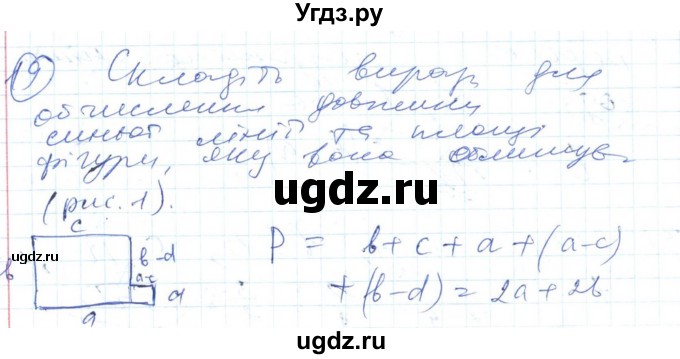 Угдз.ру
19 Складіть вираз для
обчислення довжини
синьої лінії та площі
фігури, яку вона обмежує
(рис. 1).
c
b
b-d
a-c
d
a
P = b+c+a+(a-c)
+(b-d)=2a+2b
ugdz.ru
ugdz.ru
ugdz.ru
ugdz.ru